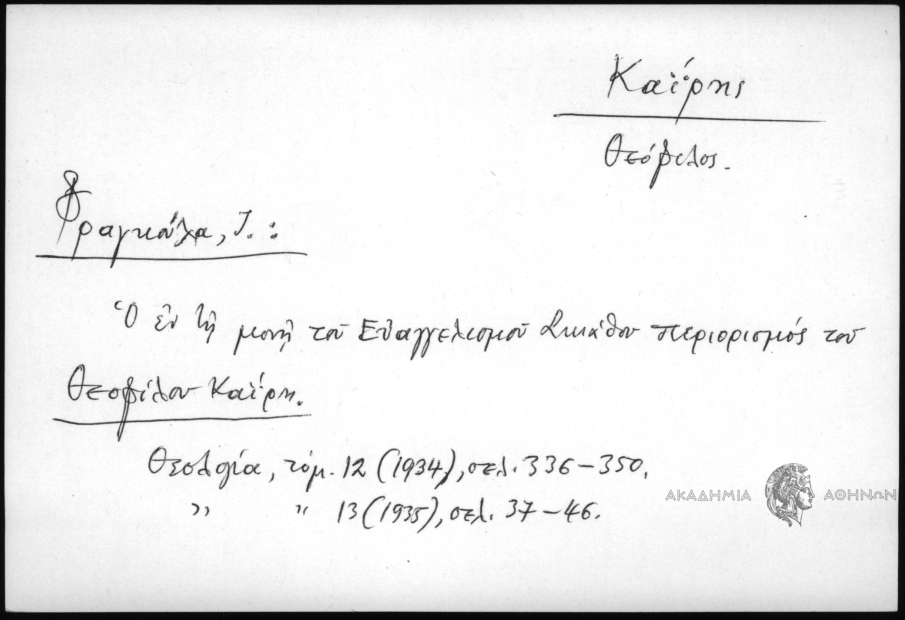 Καΐρης
Θεόφιλος.
Φραγκούλα, Ι.:
Ὁ ἐν τῇ μονῇ τοῦ Εὐαγγελισμοῦ Σκιάθου περιορισμός τοῦ
Θεοφίλου Καΐρη.
Θεολογία, τόμ. 12 (1934), σελ. 336-350.
" " 13 (1935), σελ. 37-46.
ΑΚΑΔΗΜΙΑ ΑΘΗΝΩΝ